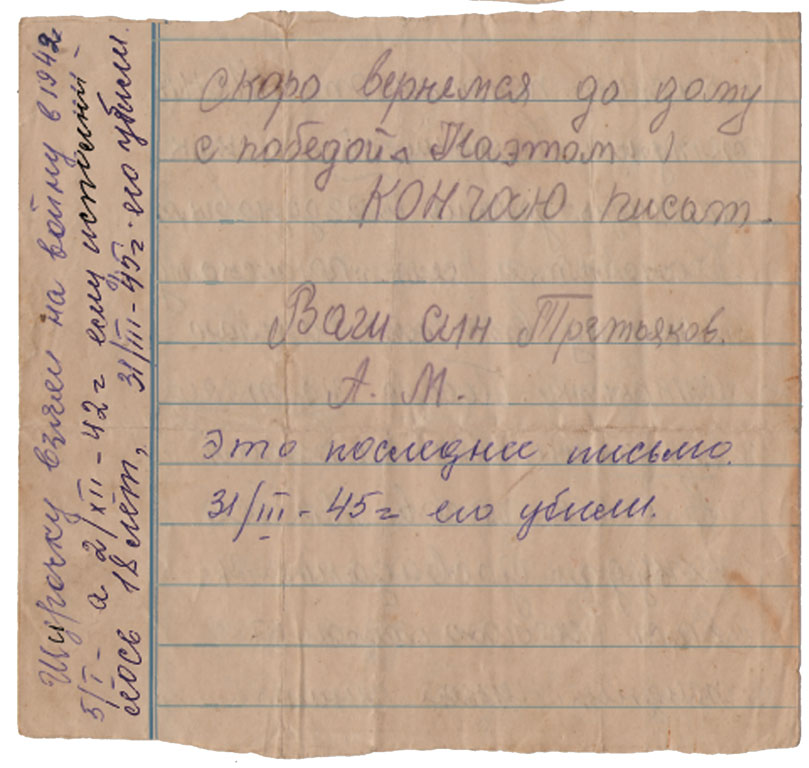 скоро вернемся до дому
с победой. На этом
кончаю писат.
Ваш син Третьяков.
А. М.
Это последнее письмо.
31/III - 45г его убили.
Шурочку взяли на войну в 1942
5/I - а 2/XII - 42г ему исполни-
лось 18 лет, 31/III - 45г. его убили.